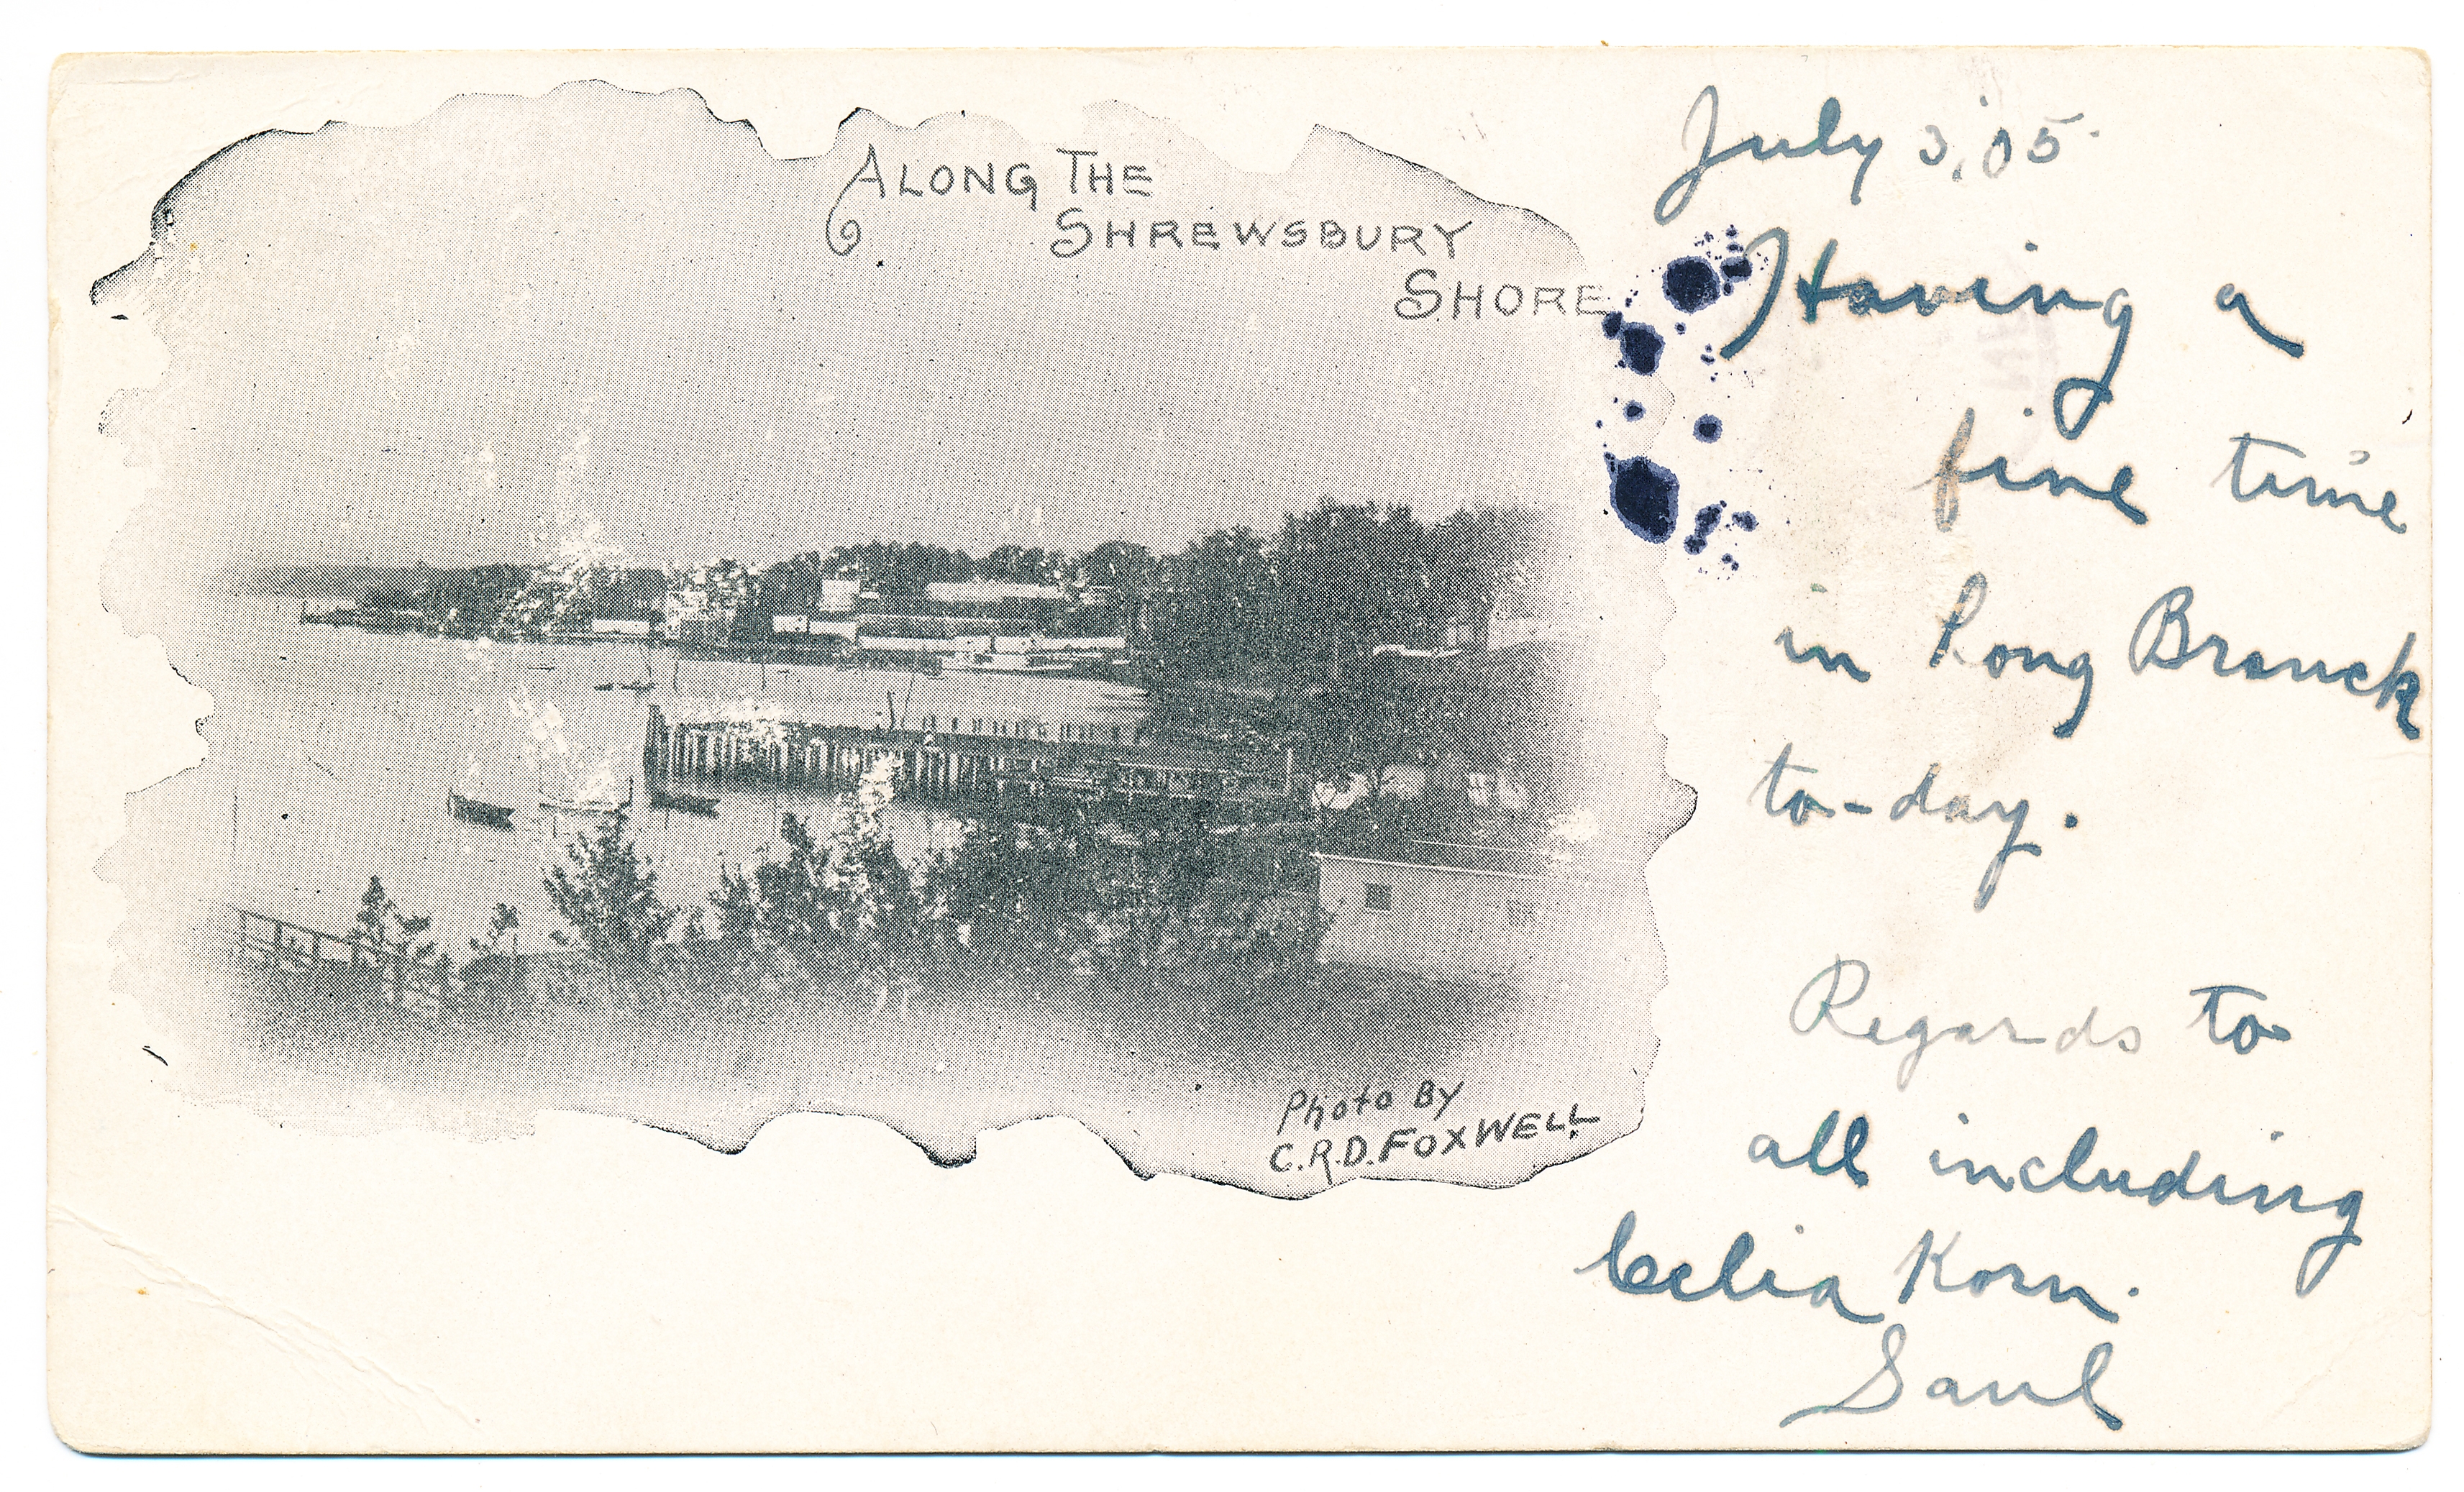 ALONG THE
SHREWSBURY
SHORE
Photo By
C.R.D. FOXWELL
July 3, 05.
Having a
fine time
in Long Branch
to-day.
Regards to
all including
Celia Korn.
Saul